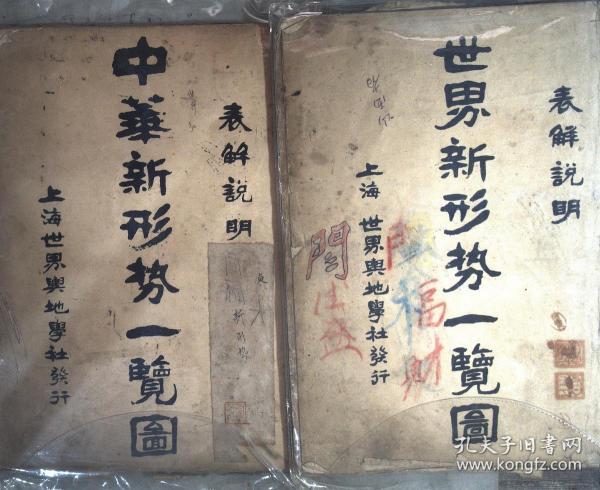 世界新形势一覽圖
表解說明
上海世界輿地學社發行
福財
中華新形势一覽圖
表解說明
上海世界輿地學社發行
孔夫子旧书网
www.kongfz.com